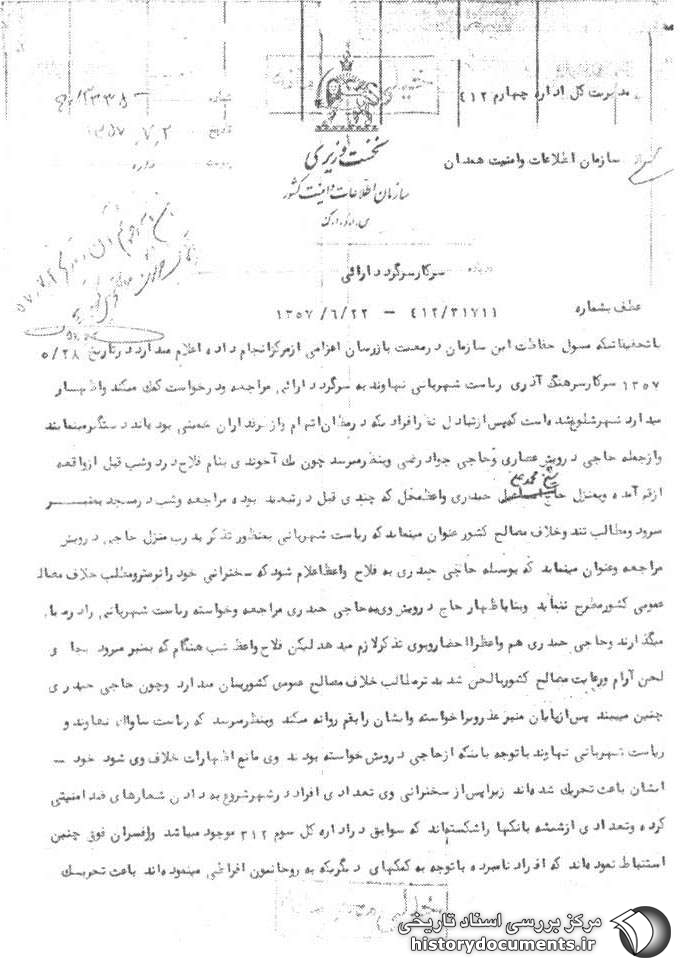 مدیریت کل اداره چهارم ۴۱۲
سازمان اطلاعات وامنیت همدان
شماره
تاریخ ۱۳۵۷٫۷٫۲
پیوست
نخست وزیری
سازمان اطلاعات و امنیت کشور
درباره سرکار سرگرد دارائی
عطف بشماره ۴۱۲/۳۱۷۱۱ – ۱۳۵۷/۶/۲۲
باتحقیقاتیکه مسئول حفاظت این سازمان درمعیت بازرسان اعزامی ازمرکزانجام داده اعلام میدارد درتاریخ ۵/۲۸
۱۳۵۷ سرکارسرهنگ آذری ریاست شهربانی نهاوند به سرگرد دارائی مراجعه ودرخواست کمک میکند واظهار
میدارد شهرشلوغ شده است که پس ازتبادل نظر افرادیکه درمظان اتهام وازطرفداران خمینی بوده اند دستگیرمینمایند
وازجمله حاجی درویش عصاری وحاجی جواد رضی وبنظرمیرسد چون یک آخوندی بنام فلاح درد وشب قبل ازواقعه
ازقم آمده وبمنزل حاج شیخ محمدعلی حیدری واعظ محل که چندی قبل درتبعید بوده مراجعه وشب درمسجد بمنبر
میرود ومطالب تند وخلاف مصالح کشور عنوان مینماید که ریاست شهربانی بمنظور تذکر به درب منزل حاجی درویش
مراجعه وعنوان مینماید که بوسیله حاجی حیدری به فلاح واعظ اعلام شود که سخنرانی خود را نرمترومطلب خلاف مصالح
عمومی کشورمطرح ننماید وبنا باظهار حاج درویش وی به حاجی حیدری مراجعه وخواسته ریاست شهربانی رادرمیان
میگذارند وحاجی حیدری هم واعظ رااحضاروبوی تذکرلازم میدهد لیکن فلاح واعظ شب هنگام که بمنبر میرود بجای
لحن آرام ورعایت مصالح کشوربالحن شدیدتر مطالب خلاف مصالح عمومی کشوربیان میدارد وچون حاجی حیدری
چنین میبیند پس ازپایان منبر عذرویراخواسته وایشان رابقم روانه میکند وبنظرمیرسد که ریاست ساواک نهاوند و
ریاست شهربانی نهاوند باتوجه باینکه ازحاجی درویش خواسته بودند وی مانع اظهارات خلاف وی شود خود –
ایشان باعث تحریک شده اند زیراپس از سخنرانی وی تعدادی افراد درشهرشروع به دادن شعارهای ضد امنیتی
کرده وتعدادی ازشیشه بانکها راشکسته اند که سوابق دراداره کل سوم ۳۱۲ موجود میباشد وافسران فوق چنین
استنباط نموده اند که افراد نامبرده باتوجه به کمکهای دیگریکه به روحانیون افراطی مینموده اند باعث تحریک
مرکز بررسی اسناد تاریخی
historydocuments.ir